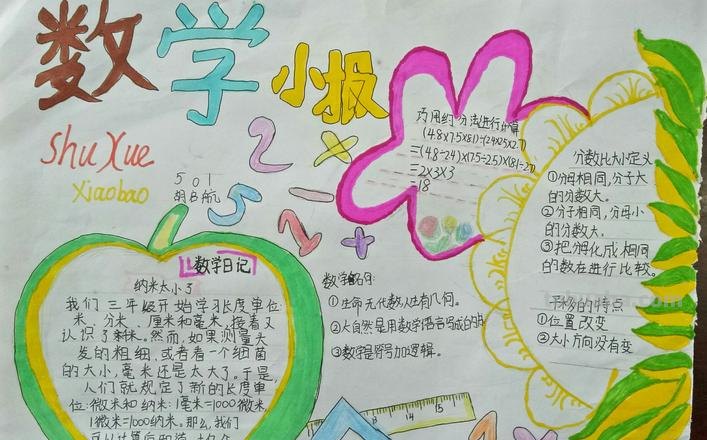 数学
小报
shu xue
xiaobao
501
胡 航
数学日记
纳米太小了
我们三年级开始学习长度单位:
米、分米、厘米和毫米,接着又
认识了千米。然而,如果测量头
发的粗细,或者看一个细菌
的大小,毫米还是太大了。于是,
人们就规定了新的长度单
位:微米和纳米:1毫米=1000微米,
1微米=1000纳米。那么,我们
巧用约分法进行计算
(4.8×7.5×8.1)÷(24×25×2.7)
=(4.8÷24)×(7.5÷2.5)×(8.1÷2.7)
=2×3×3
=18
数学名句:
①生命无价数人生有几何。
②大自然是用数学语言写成的
③数学是符号加逻辑。
14
15
分数比大小定义
①分母相同,分子大
的分数大。
②分子相同,分母小
的分数大。
③把分母化成相同
的数在进行比较。
平移的特点
①位置改变
②大小方向没有变